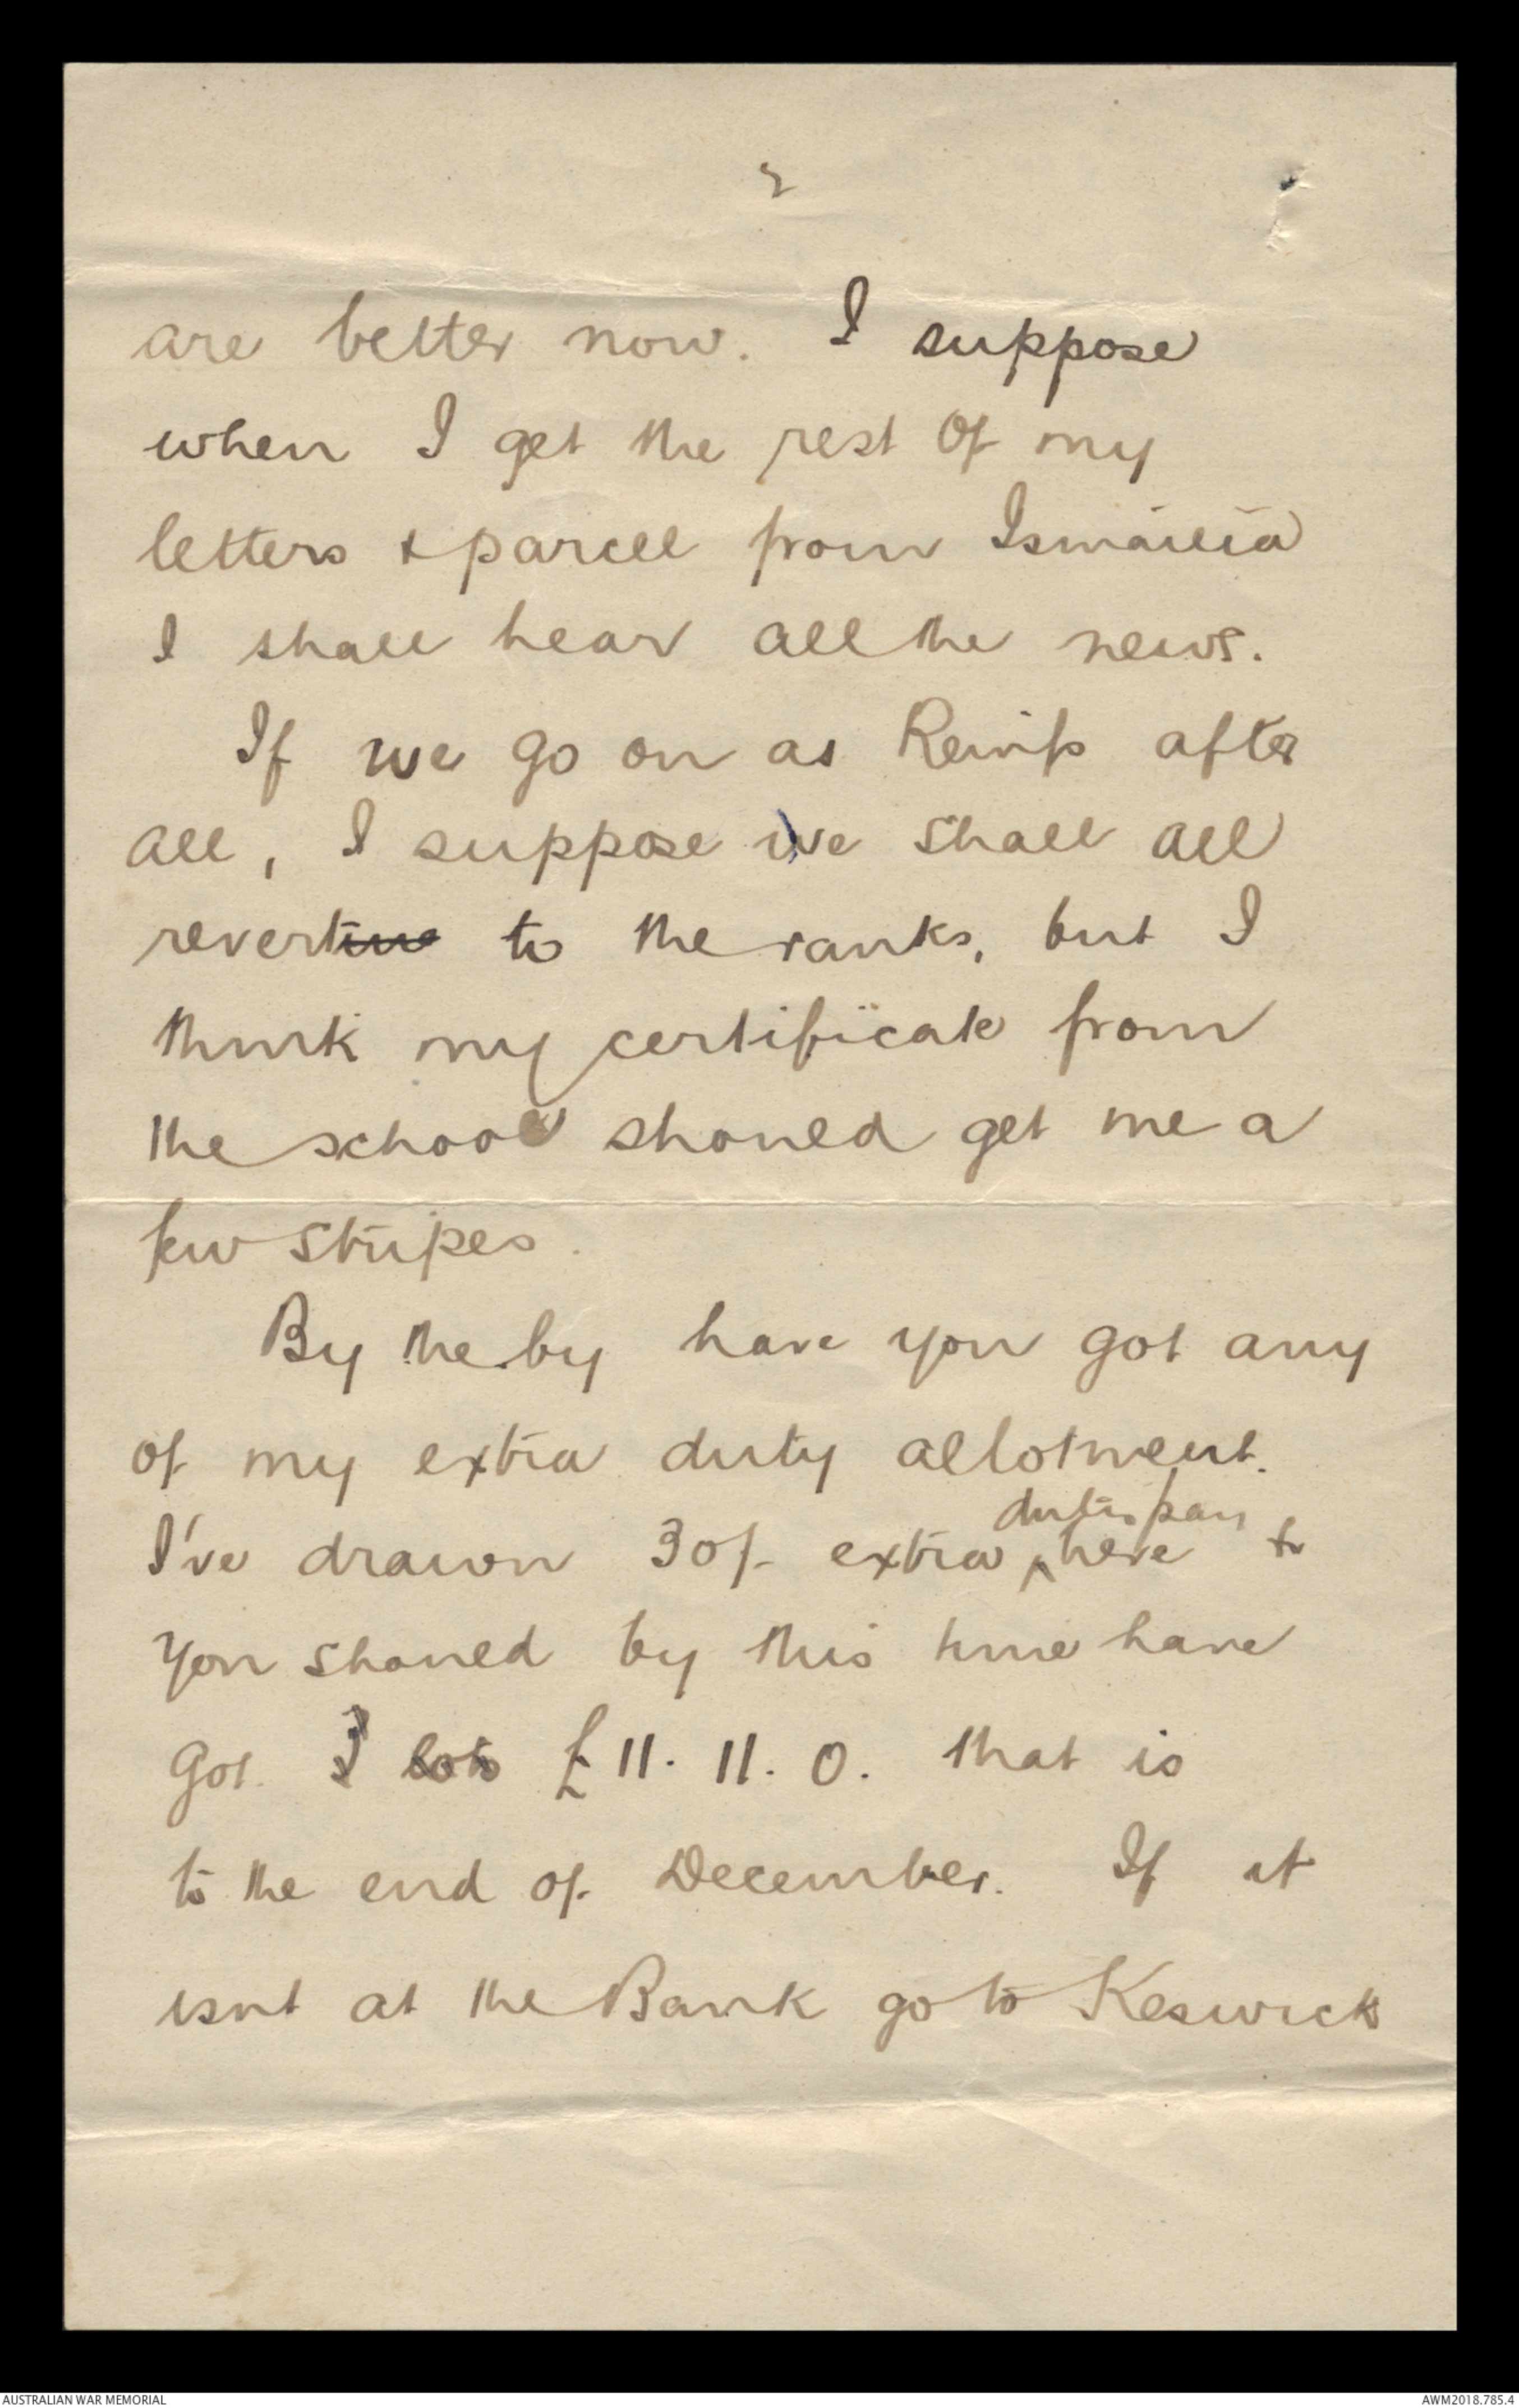 2
are better now. I suppose
when I get the rest of my
letters & parcel from Ismailia
I shall hear all the news.
If we go on as Reinfs after
all, I suppose we shall all
revert to the ranks, but I
think my certificate from
the school should get me a
few stripes.
By the by have you got any
of my extra duty allotment.
duty pay
I've drawn 30/- extra ^ here &
you should by this time have
got £11. 11. 0. that is
to the end of December. If it
isnt at the Bank go to Keswick
AUSTRALIAN WAR MEMORIAL
AWM2018.785.4